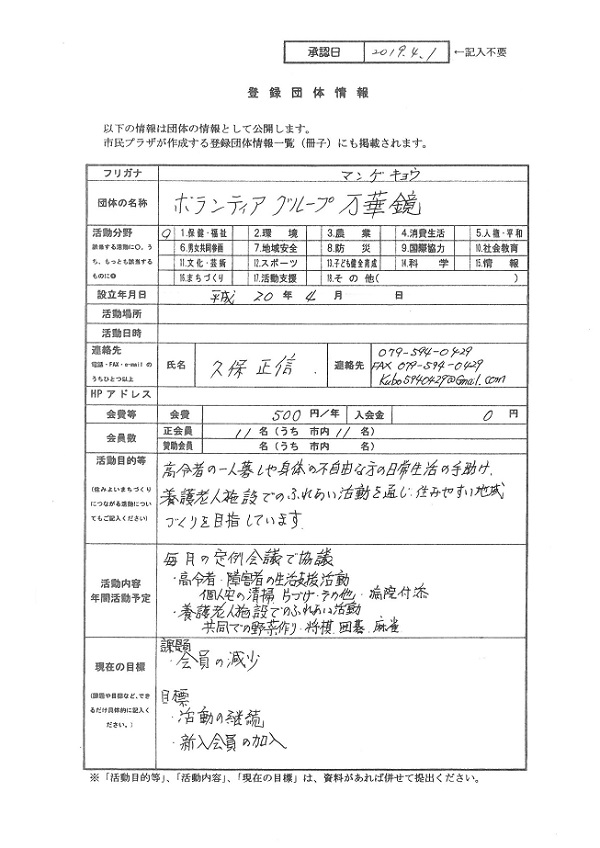 承認日 2019.4.1 ←記入不要
登録団体情報
以下の情報は団体の情報として公開します。
市民プラザが作成する登録団体情報一覧（冊子）にも掲載されます。
フリガナ マンゲキョウ
団体の名称 ボランティアグループ万華鏡
活動分野
該当する活動に〇。うち、もっとも該当するものに◎
〇 1.保健・福祉 2.環境 3.農業 4.消費生活 5.人権・平和
6.男女共同参画 7.地域安全 8.防災 9.国際協力 10.社会教育
11.文化・芸術 12.スポーツ 13.子ども健全育成 14.科学 15.情報
16.まちづくり 17.活動支援 18.その他( )
設立年月日 平成 20年 4月 日
活動場所
活動日時
連絡先
電話・FAX・e-mailのうちひとつ以上
氏名 久保正信
連絡先 079-594-0429
FAX 079-594-0429
Kubo5940429@Gmail.com
HPアドレス
会費等 会費 500円/年 入会金 0円
会員数 正会員 11名（うち 市内 11名）
賛助会員 名（うち 市内 名）
活動目的等
(住みよいまちづくりにつながる活動についてもご記入ください)
高令者の一人暮しや身体の不自由な方の日常生活の手助け、
養護老人施設でのふれあい活動を通じ、住みやすい地域
づくりを目指しています
活動内容
年間活動予定
毎月の定例会議で協議
・高令者・障害者の生活支援活動
個人宅の清掃 片づけ・その他・病院付添
・養護老人施設でのふれあい活動
共同での野菜作り・将棋、囲碁、麻雀
現在の目標
(課題や目標など、できるだけ具体的に記入ください。)
課題
・会員の減少
目標
・活動の継続
・新入会員の加入
※「活動目的等」、「活動内容」、「現在の目標」は、資料があれば併せて提出ください。